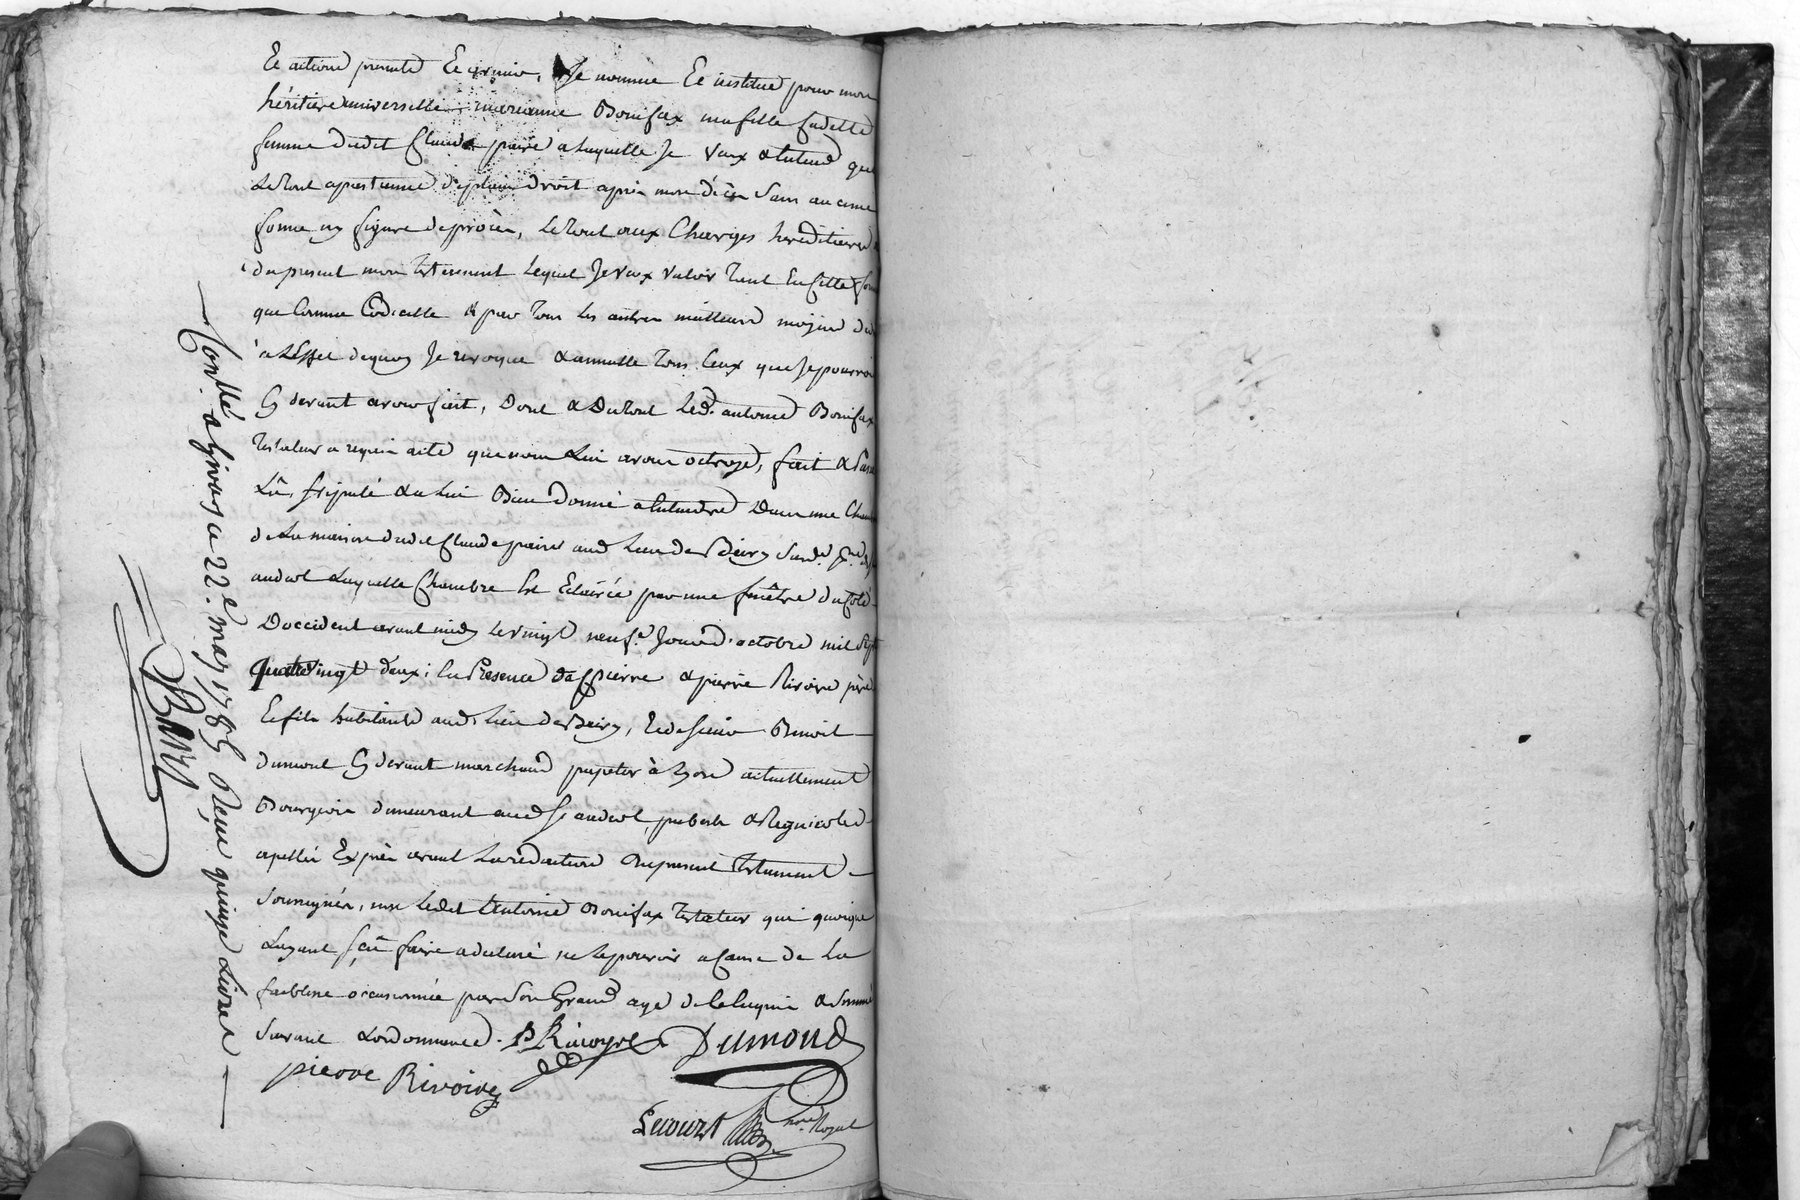 Et actions presents Et avenir, Je nomme Et institue pour mon
héritiere universelle marianne Bonifax ma fille Cadette
femme dudit Claude paire a laquelle Je Veux & entend que
Le tout apartienne de plain droit après mon décès Sans aucune
forme ny figure de procès, Le tout aux Charges hereditaires
du present mon testament Lequel Je Veux Valoir tant En cette
que Comme Codicelle & par tous les autres meilleurs moyens
a L'Effet de quoy Je revoque & annulle tous Ceux que Je pourrois
Cy devant avoir fait, Dont & Du tout Led. antoine Bonifax
testateur a requis acte que nous Lui avons octroyé, fait &
Lû, stipulé & a Lui Bien Donné a Entendre Dans une
de La maison dudit Claude paire aud. Lieu de
andeol Laquelle Chambre Est Eclairée par une fenêtre du Coté
D'occident avant midy le vingt neuf.e Jour d'octobre mil sept
quatre vingt deux: En Presence de pierre & pierre Rivoire père
Et fils habitants aud. Lieu de & de sieur Benoit
dumont Cy devant marchand papetier à Lyon actuellement
Bourgeois demeurant aud. St andeol, & Regnicoles
apellés Exprès avant La rédaction du present testament
soussignés, non Ledit Antoine Bonifax testateur qui quoique
L'ayant sçû faire a déclaré ne Le pouvoir a Cause de La
faiblesse occasionnée par Son Grand age de Ce Enquis & sommé
Suivant L'ordonnance. P Rivoyre Dumond
pierre Rivoire
Lecourt no.re Royal
Conttlé a Givors ce 22.e may 1785 Reçu quinze Livres